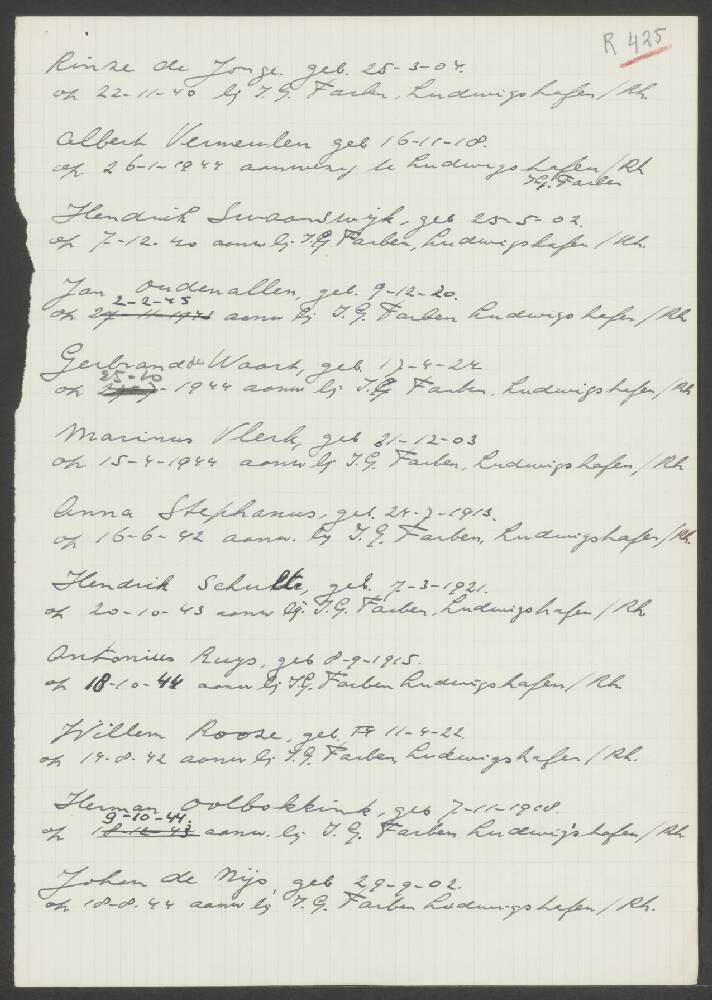 R 425
Rinze de Jonge geb. 25-3-04.
op 22-11-40 bij I.G. Farben, Ludwigshafen/Rh
Albert Vermeulen geb 16-11-18.
op 26-1-1944 aanwezig te Ludwigshafen/Rh
I.G. Farben
Hendrik Swaanswijk, geb 25-5-02.
op 7-12-40 aanw bij I.G. Farben, Ludwigshafen/Rh.
Jan Oudenallen, geb. 9-12-20.
2-2-43
op aanw bij I.G. Farben Ludwigshafen/Rh
Gerbrand de Waart, geb. 17-4-24
25-10
op -1944 aanw bij I.G. Farben, Ludwigshafen/Rh
Marinus Vlerk, geb 31-12-03
op 15-4-1944 aanw bij I.G. Farben, Ludwigshafen/Rh
Anna Stephanus, geb. 24-7-1913.
op 16-6-42 aanw. bij I.G. Farben, Ludwigshafen/Rh.
Hendrik Schulte, geb. 7-3-1921.
op 20-10-43 aanw bij I.G. Farben, Ludwigshafen/Rh
Antonius Ruys, geb 8-9-1915.
op 18-10-44 aanw bij I.G. Farben Ludwigshafen/Rh
Willem Roose, geb. 11-4-22
op 14-8-42 aanw bij I.G. Farben Ludwigshafen/Rh.
Herman Oolbokkink, geb 7-11-1918.
9-10-44.
op 18-12-43 aanw. bij I.G. Farben Ludwigshafen/Rh
Johan de Nijs, geb 29-9-02.
op 18-8-44 aanw bij I.G. Farben Ludwigshafen/Rh.